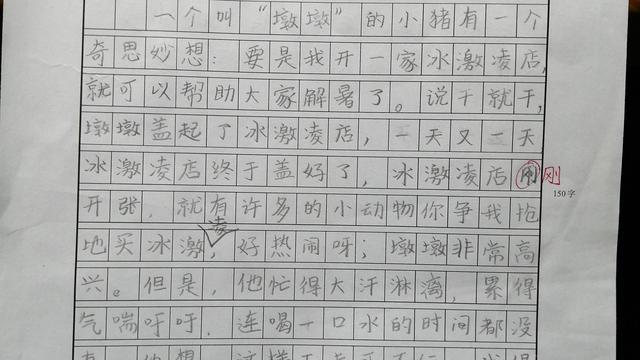 一个叫“墩墩”的小猪有一个
奇思妙想：要是我开一家冰激凌店，
就可以帮助大家解暑了。说干就干，
墩墩盖起了冰激凌店，一天又一天
冰激凌店终于盖好了，冰激凌店刚
150字
开张，就有许多的小动物你争我抢
地买冰激凌，好热闹呀；墩墩非常高
兴。但是，他忙得大汗淋漓，累得
气喘吁吁．连喝一口水的时间都没